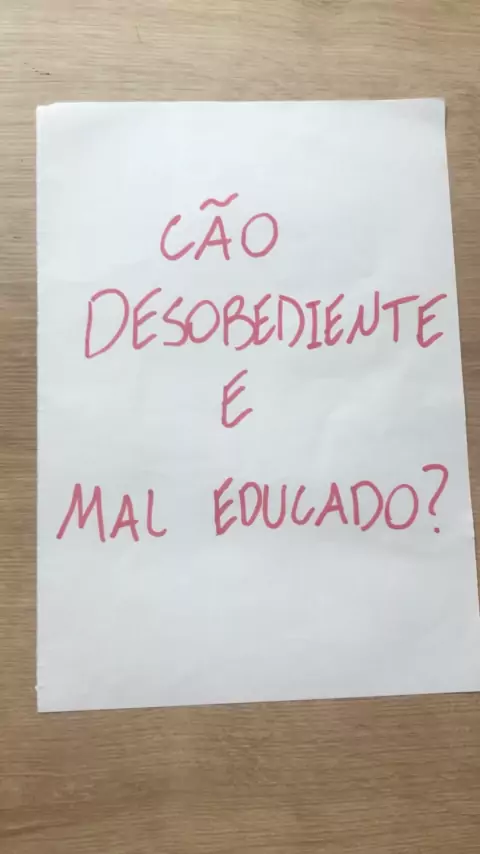 CÃO
DESOBEDIENTE
E
MAL EDUCADO?